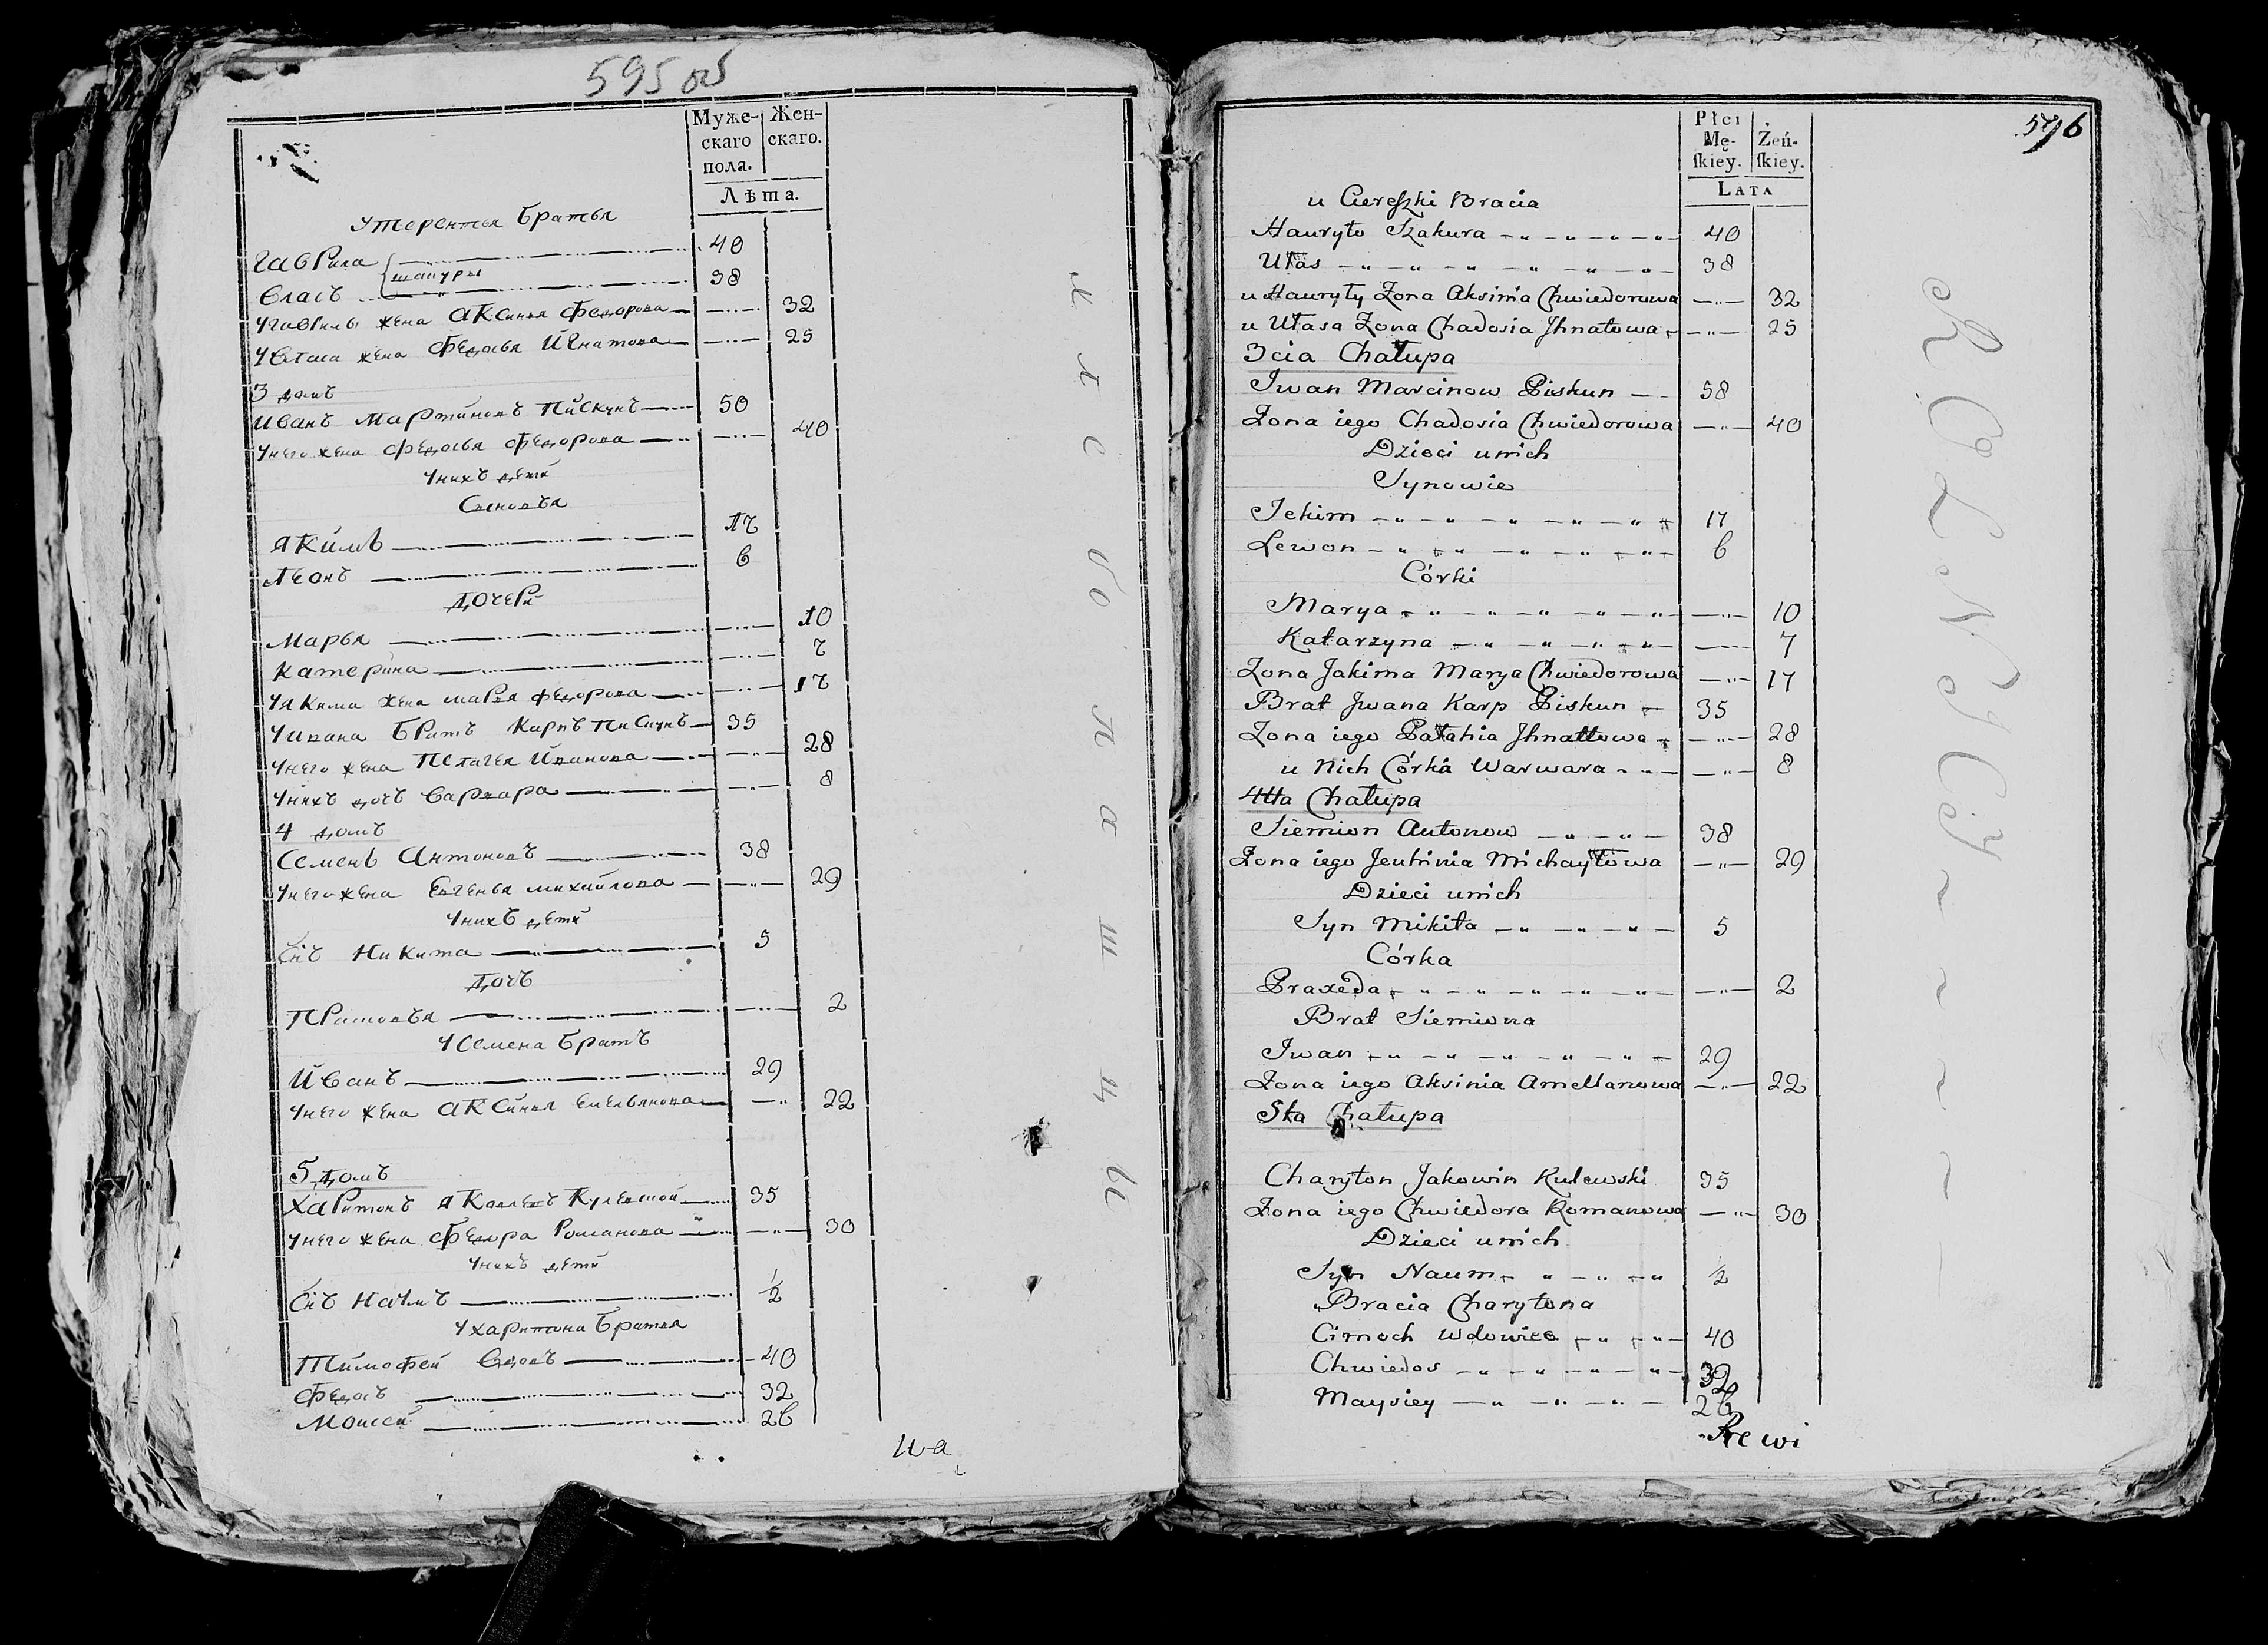 595 об
Муже-скаго пола. Жен-скаго.
Лѣта.
У терентья братья
Гаврила 40
шакуры
Власъ 38
У гаврилы жена аксинья федорова 32
У власа жена федосья игнатова 25
3 домъ
Иванъ Мартиновъ пискунъ 50
У него жена федосья федорова 40
У нихъ дети
Сыновья
якимъ 17
леонъ 6
дочери
марья 10
катерина 7
У якима жена марья федорова 17
У ивана братъ карпъ пискунъ 35
У него жена пелагея иванова 28
У нихъ дочь варвара 8
4 домъ
Семенъ антоновъ 38
У него жена Евгенья михайлова 29
У нихъ дети
Снъ никита 5
дочь
2
У Семена братъ
Иванъ 29
У него жена аксинья емельянова 22
5 домъ
харитонъ яковлевъ 35
У него жена федора романова 30
У нихъ дети
Снъ наумъ 1/2
У харитона братья
тимофей вдовъ 40
федосъ 32
моисей 26
хлебопашцы
Ива
596
Płci Mę-skiey. Żeń-skiey.
LATA
u Cereszki Bracia
Hauryło Szakura 40
Ułas 38
u Hauryły Żona Aksinia Chwiedorowa 32
u Ułasa Żona Chadosia Jhnatowa 25
3cia Chałupa
Jwan Marcinow Piskun 58
Żona iego Chadosia Chwiedorowa 40
Dzieci u nich
Synowie
Jekim 17
Lewon 6
Córki
Marya 10
Katarzyna 7
Żona Jakima Marya Chwiedorowa 17
Brat Jwana Karp Piskun 35
Żona iego Pałahia Jhnattowa 28
u Nich Córka Warwara 8
4tta Chałupa
Siemion Antonow 38
Żona iego Jeuhinia Michayłowa 29
Dzieci u nich
Syn Mikita 5
Córka
Praxeda 2
Brat Siemiona
Jwan 29
Żona iego Aksinia Amellanowa 22
5ta Chałupa
Charyton Jakowin Kulewski 35
Żona iego Chwiedora Romanowa 30
Dzieci u nich
Syn Naum 1/2
Bracia Charytona
Cimoch Wdowiec 40
Chwiedos 32
Maysiey 26
ROLNICY
Rewi